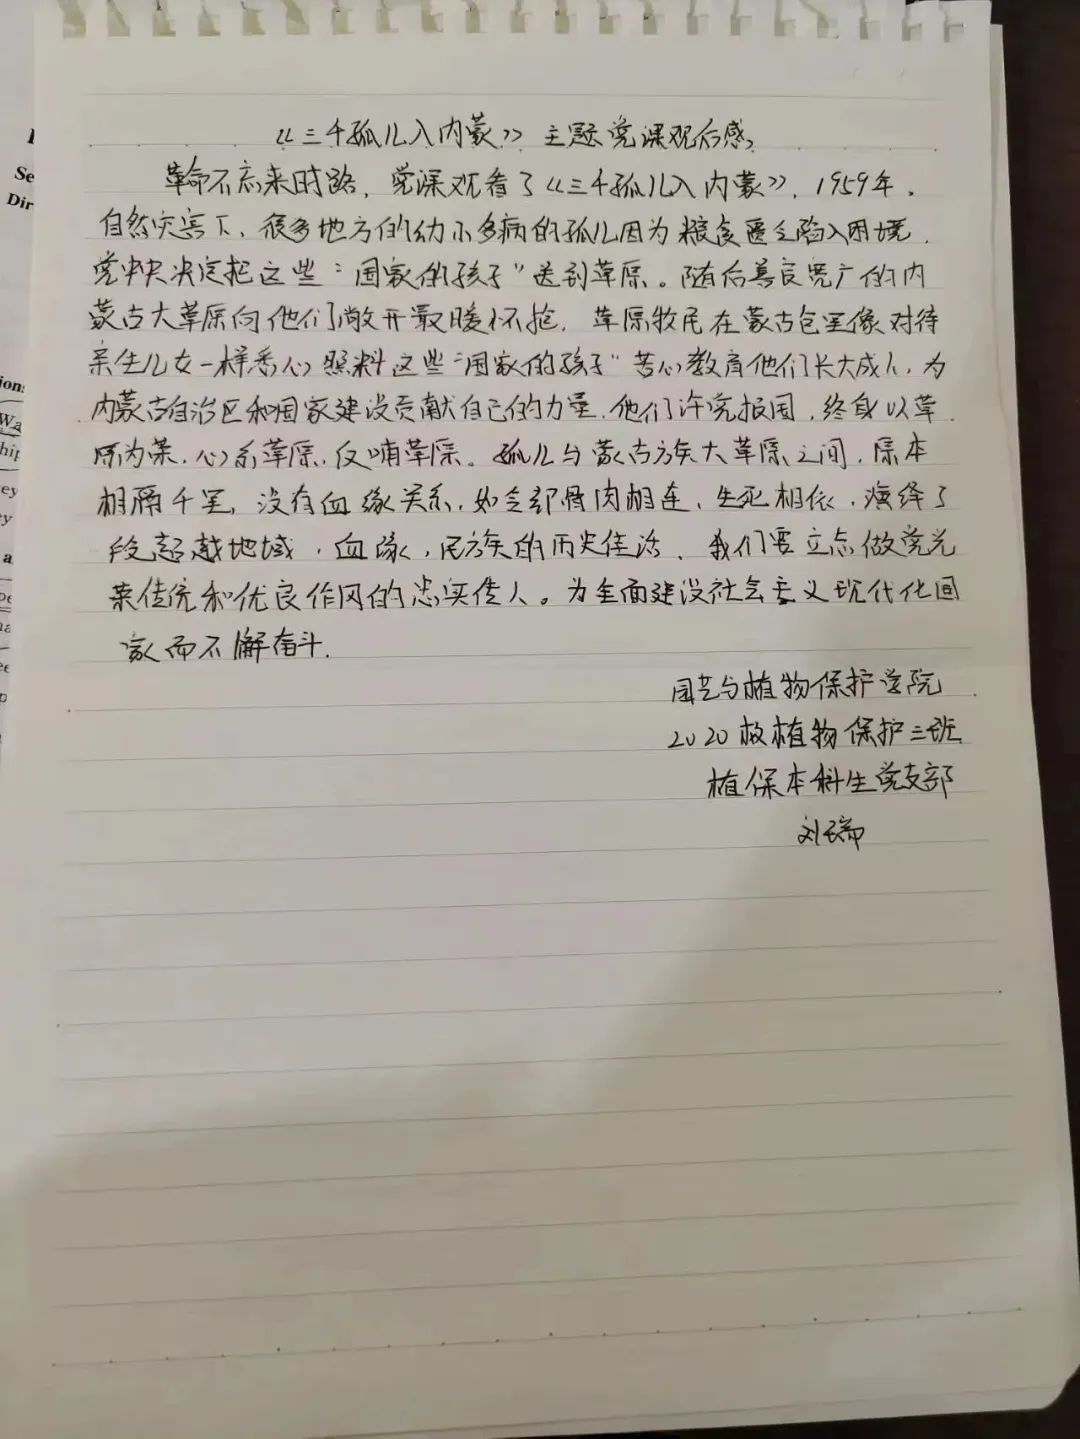 《三千孤儿入内蒙》主题党课观后感
革命不忘来时路，党课观看了《三千孤儿入内蒙》，1959年，
自然灾害下，很多地方的幼小多病的孤儿因为粮食匮乏陷入困境，
党中央决定把这些“国家的孩子”送到草原。随后善良宽广的内
蒙古大草原向他们敞开最暖怀抱，草原牧民在蒙古包里像对待
亲生儿女一样悉心照料这些“国家的孩子”苦心教育他们长大成人，为
内蒙古自治区和国家建设贡献自己的力量，他们许党报国，终身以草
原为荣，心系草原，反哺草原。孤儿与蒙古族大草原之间，原本
相隔千里，没有血缘关系，如今却骨肉相连，生死相依，演绎了
段超越地域，血缘，民族的历史佳话，我们要立志做党光
荣传统和优良作风的忠实传人。为全面建设社会主义现代化国
家而不懈奋斗.
园艺与植物保护学院
2020级植物保护三班
植保本科生党支部
刘瑞
Se
Dir
ion
Wa
ship
ey
y
a